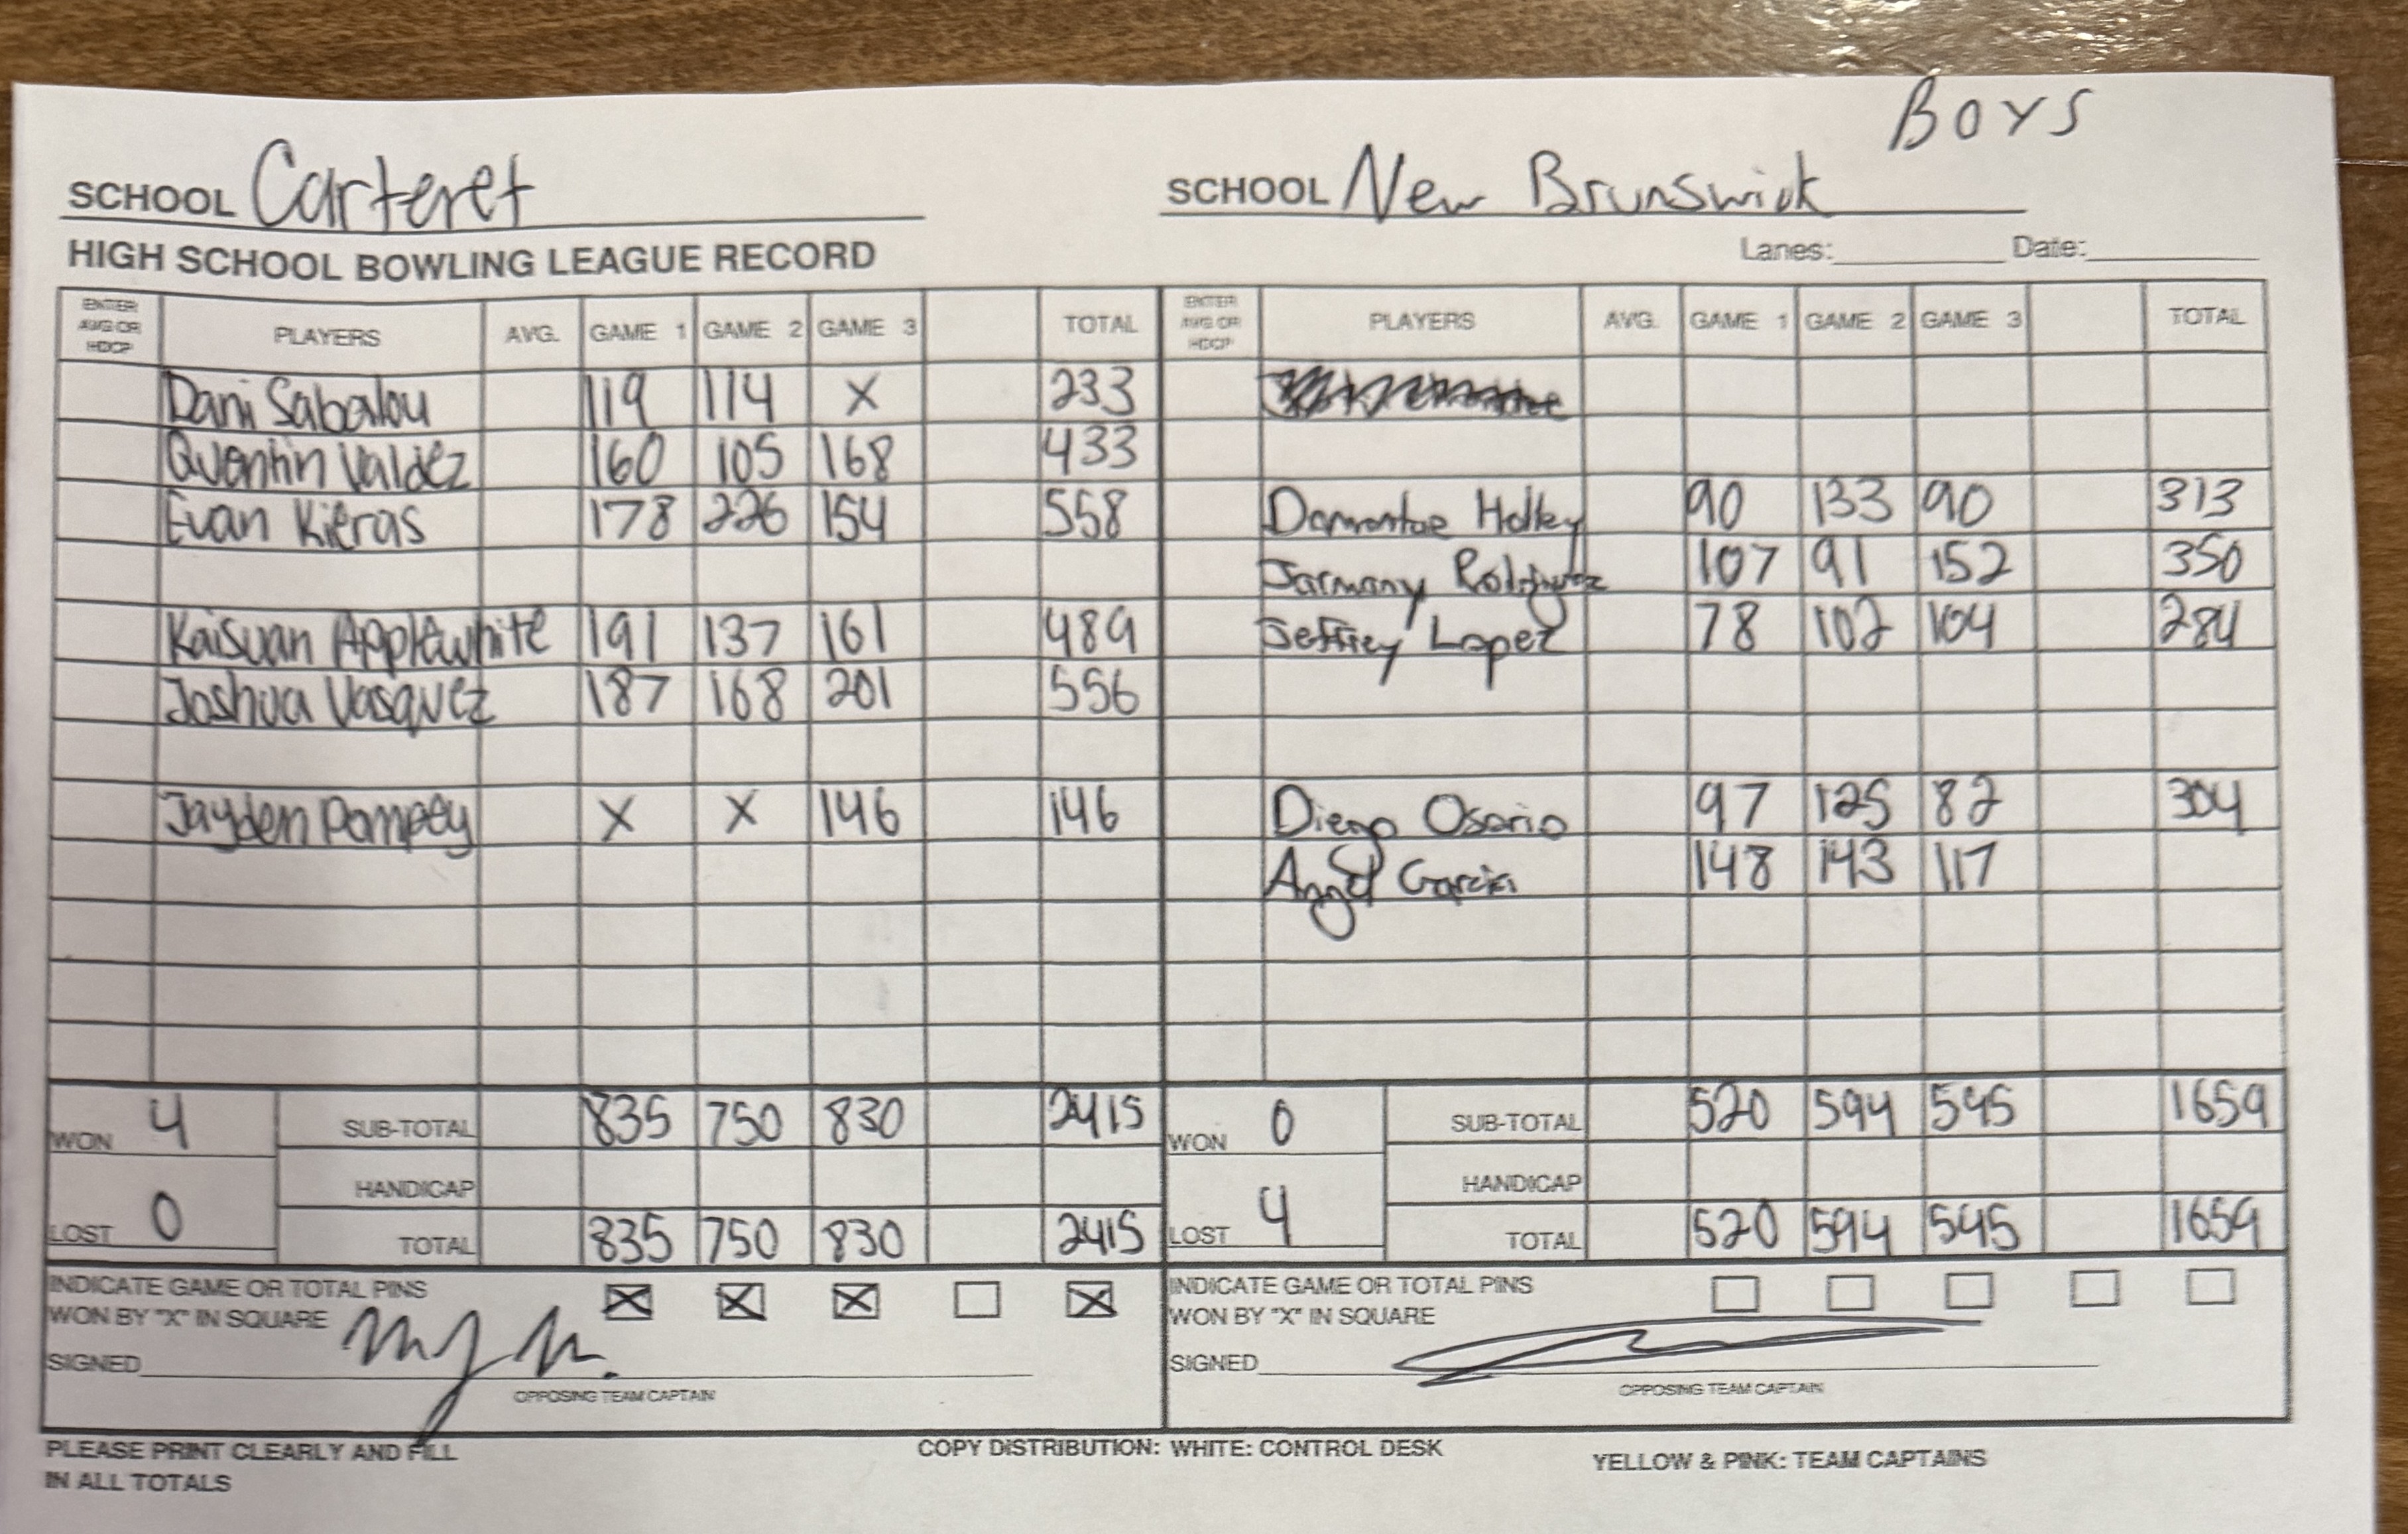 BOYS
SCHOOL Carteret SCHOOL New Brunswick
HIGH SCHOOL BOWLING LEAGUE RECORD Lanes: Date:
ENTER AVG OR HDCP PLAYERS AVG. GAME 1 GAME 2 GAME 3 TOTAL ENTER AVG OR HDCP PLAYERS AVG. GAME 1 GAME 2 GAME 3 TOTAL
Dani Sabalou 119 114 X 233
Quentin Valdez 160 105 168 433
Evan Kieras 178 226 154 558 Damontae Holley 90 133 90 313
Jarmany Rodriguez 107 91 152 350
Kaisuan Applewhite 191 137 161 489 Jeffrey Lopez 78 102 104 284
Joshua Vasquez 187 168 201 556
Jayden Pompey X X 146 146 Diego Osorio 97 125 82 304
Angel Garcia 148 143 117
WON 4 SUB-TOTAL 835 750 830 2415 WON 0 SUB-TOTAL 520 594 545 1659
HANDICAP HANDICAP
LOST 0 TOTAL 835 750 830 2415 LOST 4 TOTAL 520 594 545 1659
INDICATE GAME OR TOTAL PINS X X X X INDICATE GAME OR TOTAL PINS
WON BY "X" IN SQUARE WON BY "X" IN SQUARE
SIGNED SIGNED
OPPOSING TEAM CAPTAIN OPPOSING TEAM CAPTAIN
PLEASE PRINT CLEARLY AND FILL COPY DISTRIBUTION: WHITE: CONTROL DESK YELLOW & PINK: TEAM CAPTAINS
IN ALL TOTALS